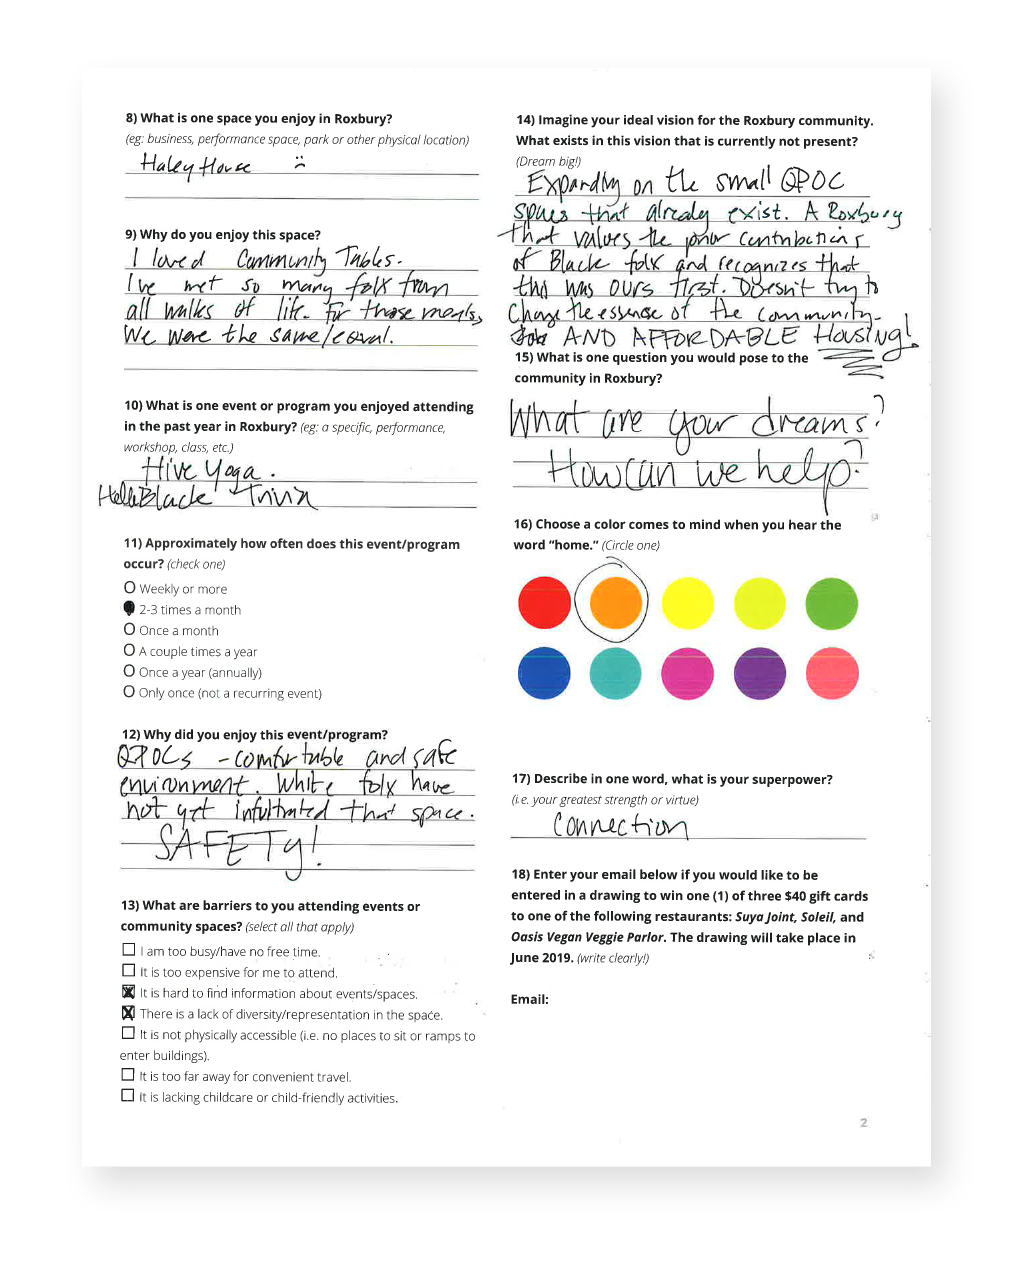 8) What is one space you enjoy in Roxbury?
(eg: business, performance space, park or other physical location)
Haley House :(
9) Why do you enjoy this space?
I loved Community Tables.
I've met so many folx from
all walks of life. For those moments,
We were the same/equal.
10) What is one event or program you enjoyed attending
in the past year in Roxbury? (eg: a specific, performance,
workshop, class, etc.)
Hive Yoga.
HellaBlack Trivia
11) Approximately how often does this event/program
occur? (check one)
Weekly or more
2-3 times a month
Once a month
A couple times a year
Once a year (annually)
Only once (not a recurring event)
12) Why did you enjoy this event/program?
QPOCs - comfortable and safe
environment. White folx have
not yet infultrated that space.
SAFETY!
13) What are barriers to you attending events or
community spaces? (select all that apply)
I am too busy/have no free time.
It is too expensive for me to attend.
It is hard to find information about events/spaces.
There is a lack of diversity/representation in the space.
It is not physically accessible (i.e. no places to sit or ramps to
enter buildings).
It is too far away for convenient travel.
It is lacking childcare or child-friendly activities.
14) Imagine your ideal vision for the Roxbury community.
What exists in this vision that is currently not present?
(Dream big!)
Expanding on the small QPOC
spaces that already exist. A Roxbury
that values the prior contributions
of Black folx and recognizes that
this was ours first. Doesn't try to
change the essense of the community.
AND AFFORDABLE HOUSING!
15) What is one question you would pose to the
community in Roxbury?
What are your dreams?
How can we help?
16) Choose a color comes to mind when you hear the
word "home." (Circle one)
17) Describe in one word, what is your superpower?
(i.e. your greatest strength or virtue)
Connection
18) Enter your email below if you would like to be
entered in a drawing to win one (1) of three $40 gift cards
to one of the following restaurants: Suya Joint, Soleil, and
Oasis Vegan Veggie Parlor. The drawing will take place in
June 2019. (write clearly!)
Email:
2